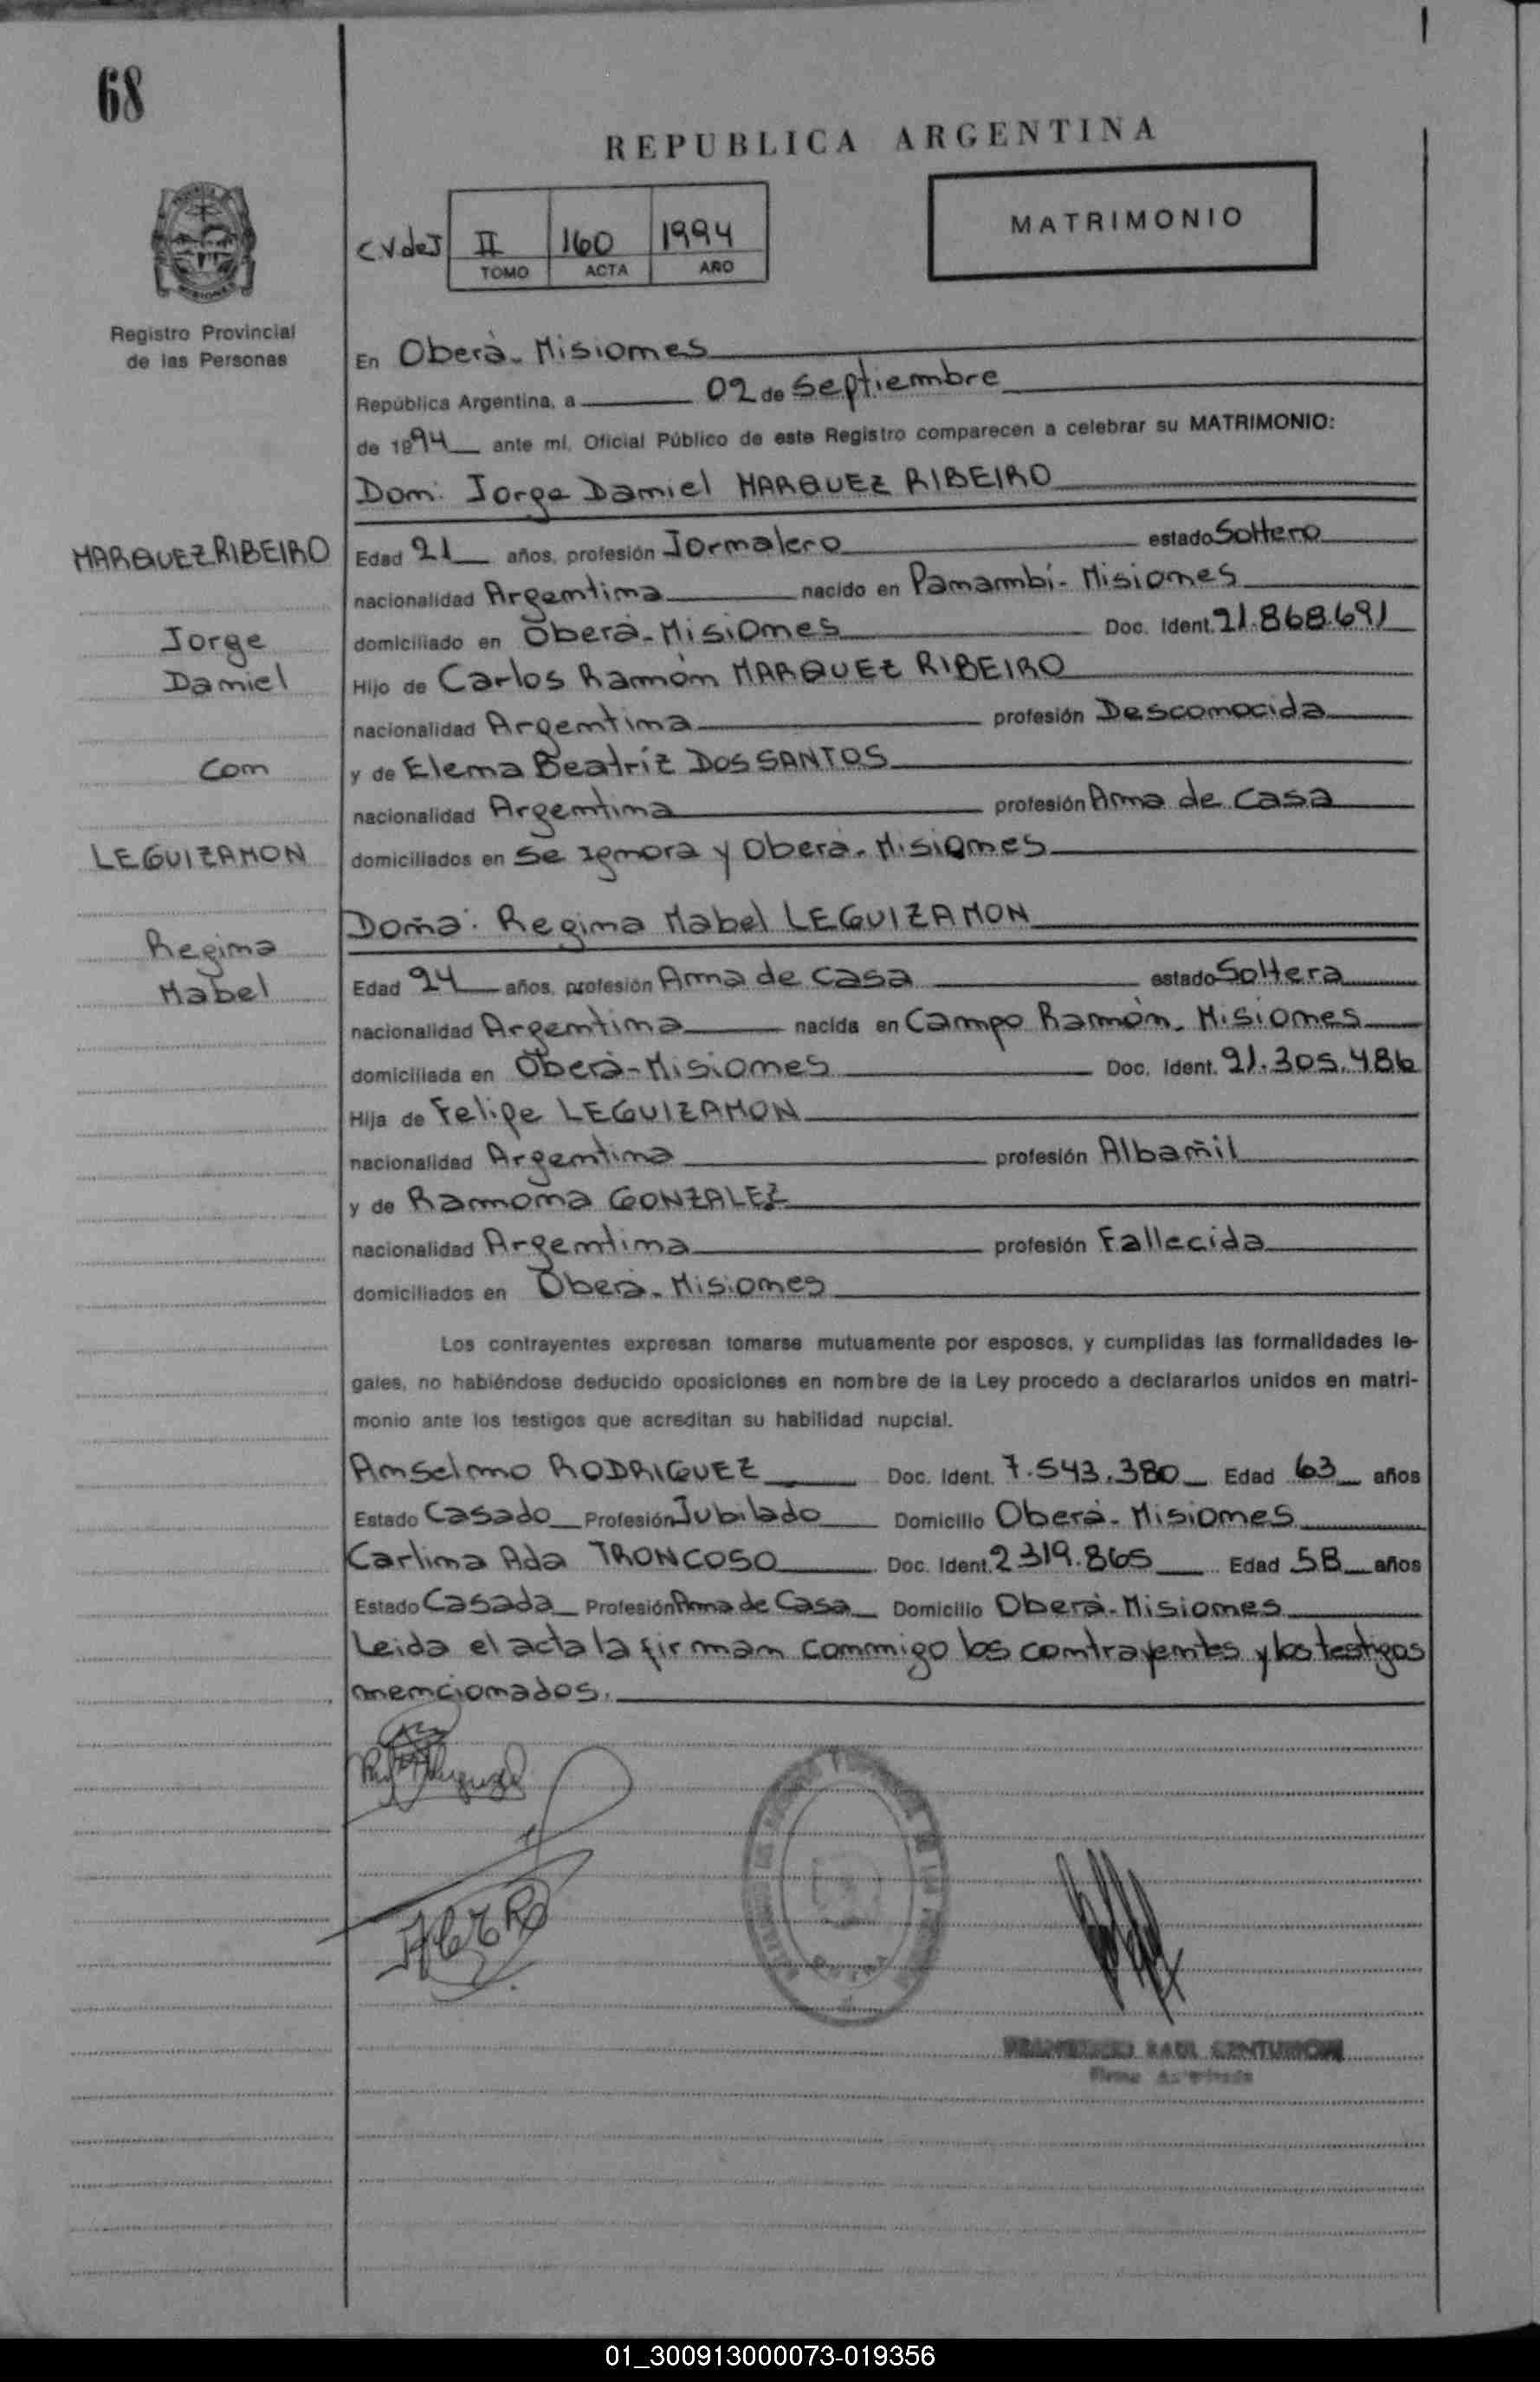 68
REPUBLICA ARGENTINA
MATRIMONIO
CVdeJ II 160 1994
TOMO ACTA AÑO
Registro Provincial
de las Personas
En Oberà - Misiones
República Argentina, a 02 de Septiembre
de 1994 ante mí, Oficial Público de este Registro comparecen a celebrar su MATRIMONIO:
Don: Jorge Daniel MARQUEZ RIBEIRO
MARQUEZ RIBEIRO
Jorge
Daniel
Con
LEGUIZAMON
Regina
Mabel
Edad 21 años, profesión Jornalero estado Soltero
nacionalidad Argentina nacido en Panambí - Misiones
domiciliado en Oberà - Misiones Doc. Ident. 21.868.691
Hijo de Carlos Ramòn MARQUEZ RIBEIRO
nacionalidad Argentina profesión Desconocida
y de Elena Beatríz DOS SANTOS
nacionalidad Argentina profesión Ama de casa
domiciliados en Se Ignora y Oberà - Misiones
Doña: Regina Mabel LEGUIZAMON
Edad 24 años, profesión Ama de Casa estado Soltera
nacionalidad Argentina nacida en Campo Ramòn - Misiones
domiciliada en Oberà - Misiones Doc. Ident. 21.305.486
Hija de Felipe LEGUIZAMON
nacionalidad Argentina profesión Albañil
y de Ramona GONZALEZ
nacionalidad Argentina profesión Fallecida
domiciliados en Oberà - Misiones
Los contrayentes expresan tomarse mutuamente por esposos, y cumplidas las formalidades le-
gales, no habiéndose deducido oposiciones en nombre de la Ley procedo a declararlos unidos en matri-
monio ante los testigos que acreditan su habilidad nupcial.
Anselmo RODRIGUEZ Doc. Ident. 7.543.380 Edad 63 años
Estado Casado Profesión Jubilado Domicilio Oberà - Misiones
Carlina Ada TRONCOSO Doc. Ident. 2319.865 Edad 58 años
Estado Casada Profesión Ama de Casa Domicilio Oberà - Misiones
Leida el acta la firman conmigo los contrayentes y los testigos
mencionados.
RAUL CENTURION
01_300913000073-019356